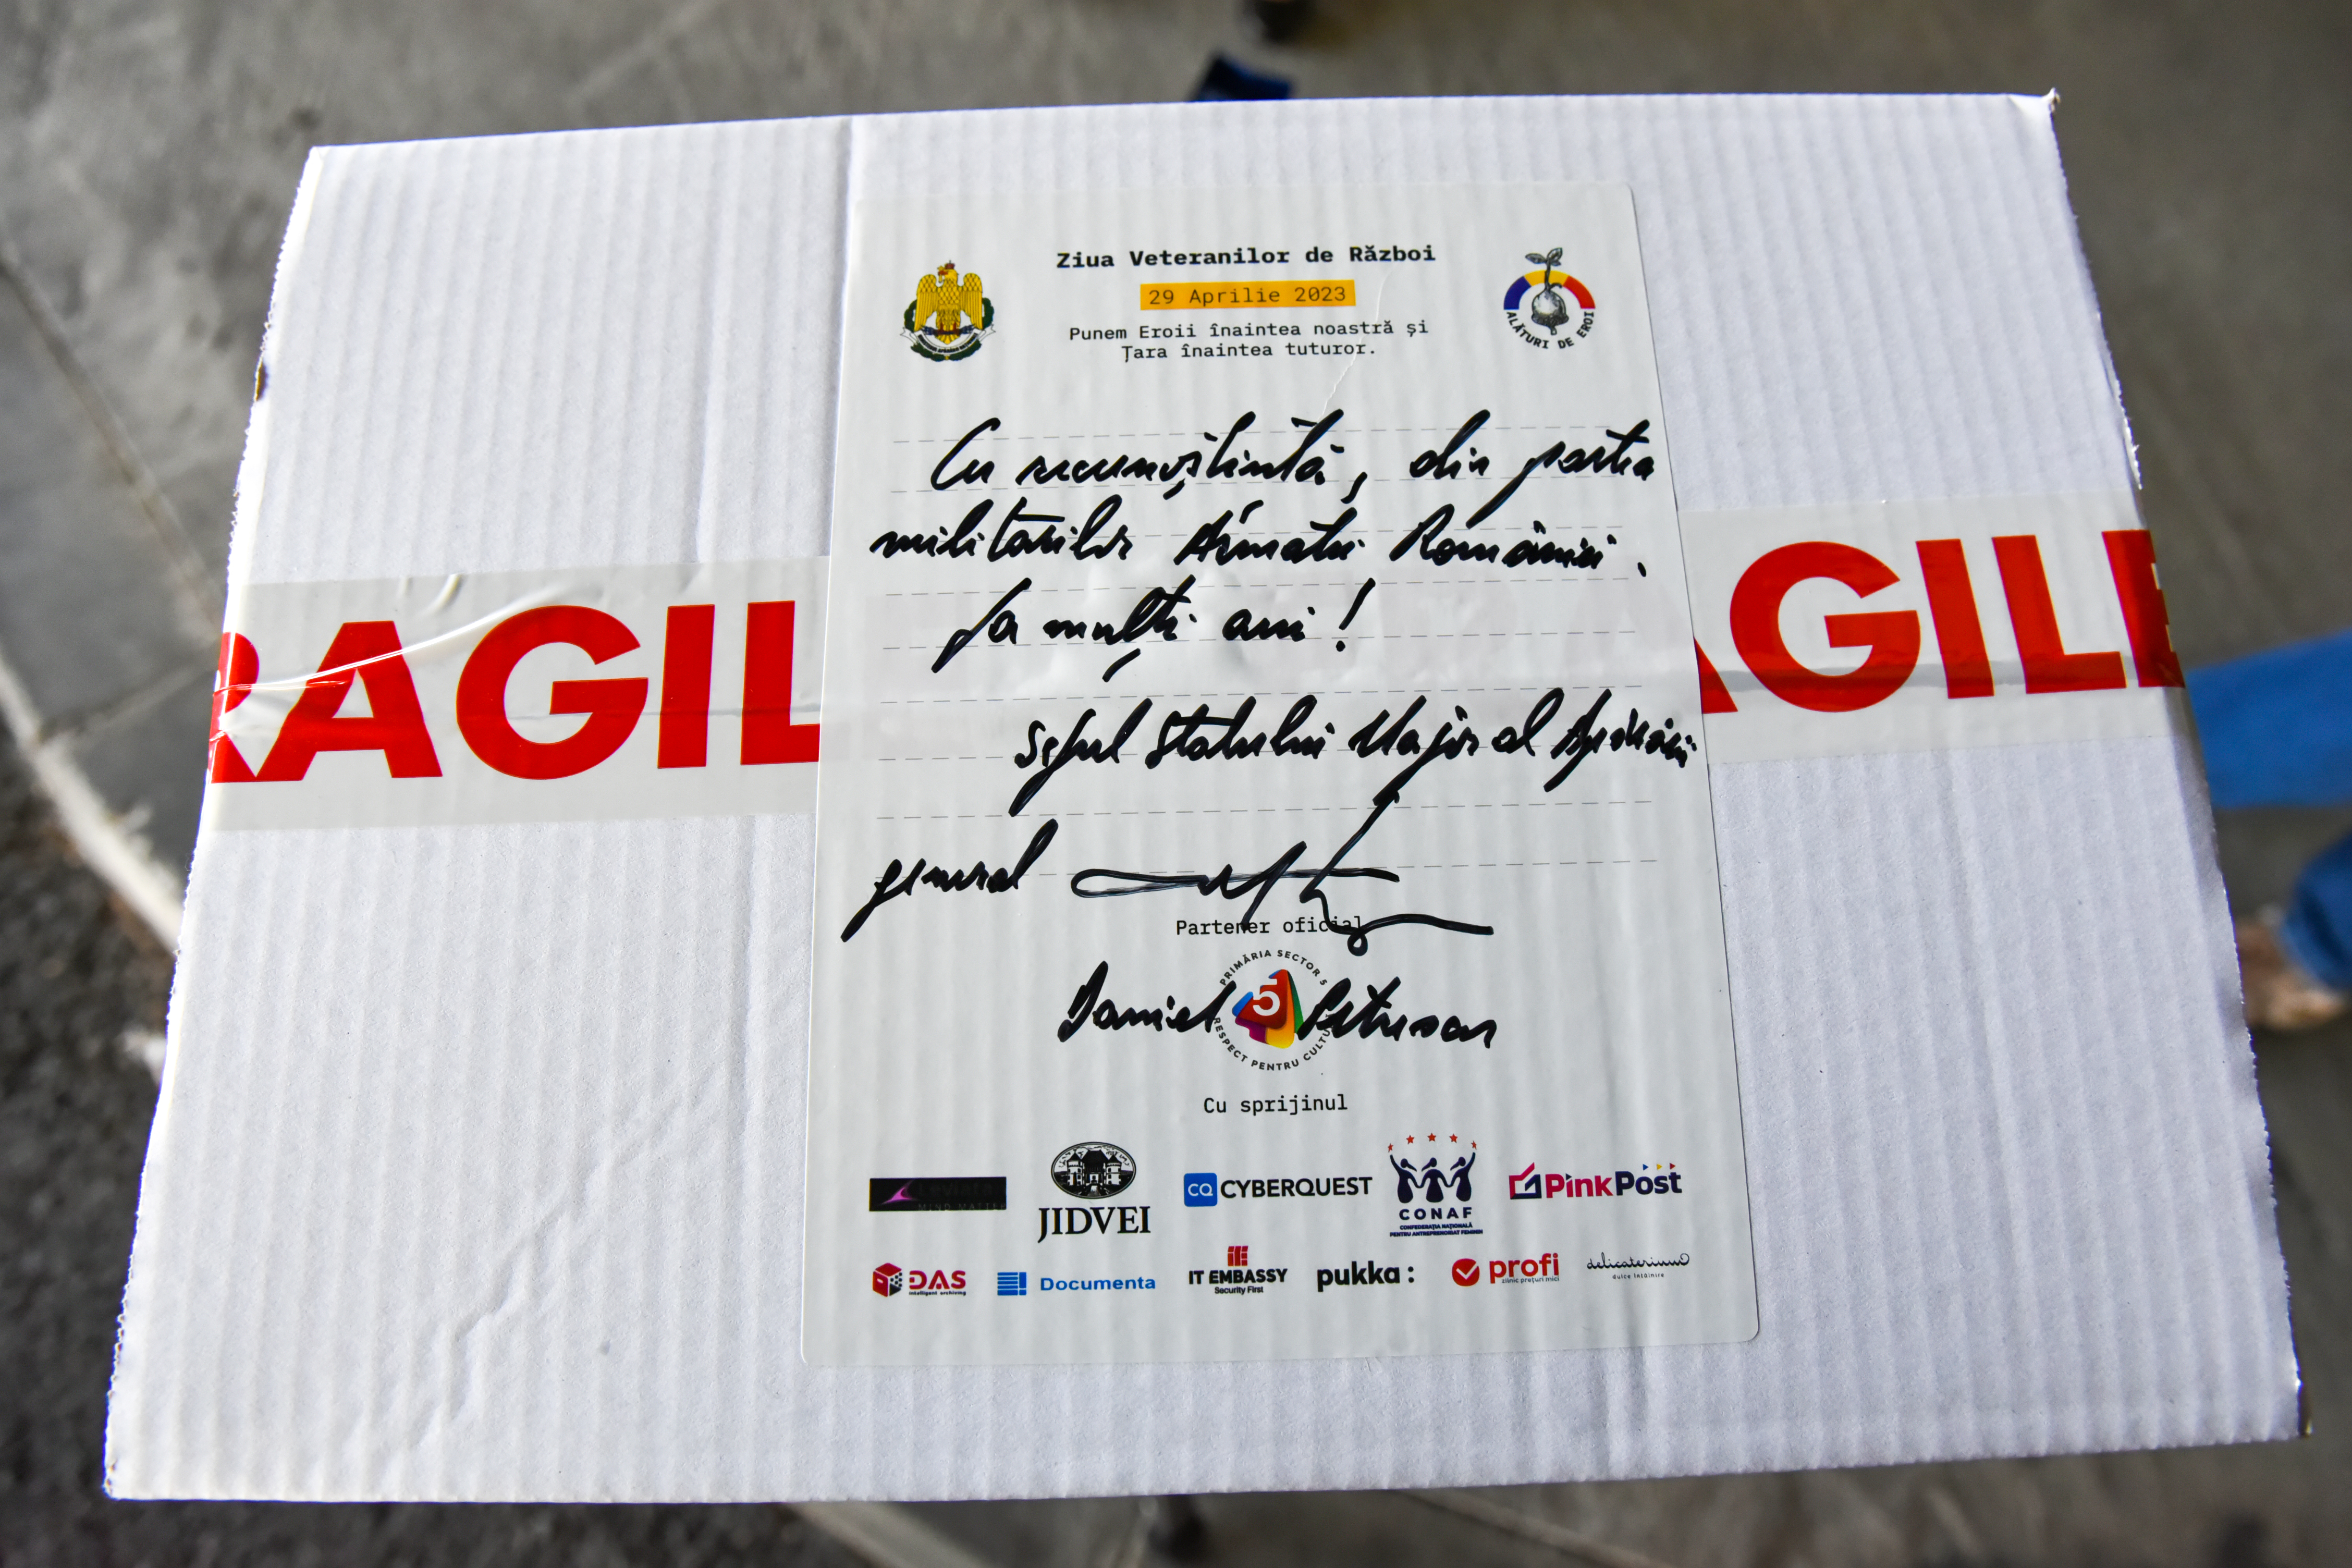 Ziua Veteranilor de Război
29 Aprilie 2023
Punem Eroii înaintea noastră și
Țara înaintea tuturor.
ALĂTURI DE EROI
Cu recunoștință, din partea
militarilor Armatei României.
La mulți ani!
Șeful Statului Major al Apărării
general
Partener oficial
PRIMĂRIA SECTOR 5
5
RESPECT PENTRU CULTU
Daniel Petrescu
Cu sprijinul
JIDVEI
CQ CYBERQUEST
CONAF
CONFEDERAȚIA NAȚIONALĂ
PENTRU ANTREPRENORIAT FEMININ
PinkPost
DAS
intelligent archiving
Documenta
IT EMBASSY
Security First
pukka:
profi
zilnic prețuri mici
delicaterium
dulce întâlnire
RAGIL
AGILE